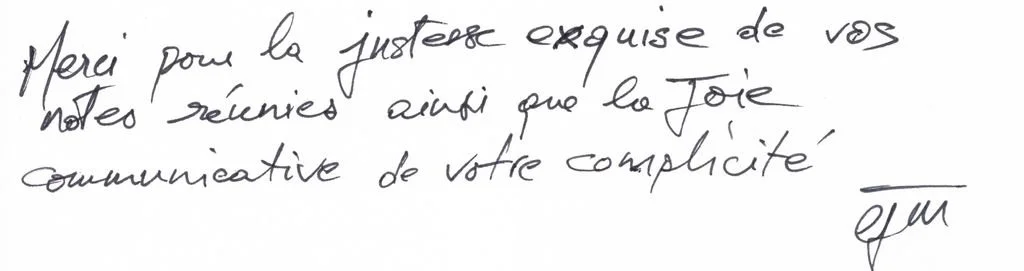 Merci pour la justesse exquise de vos
notes réunies ainsi que la Joie
communicative de votre complicité